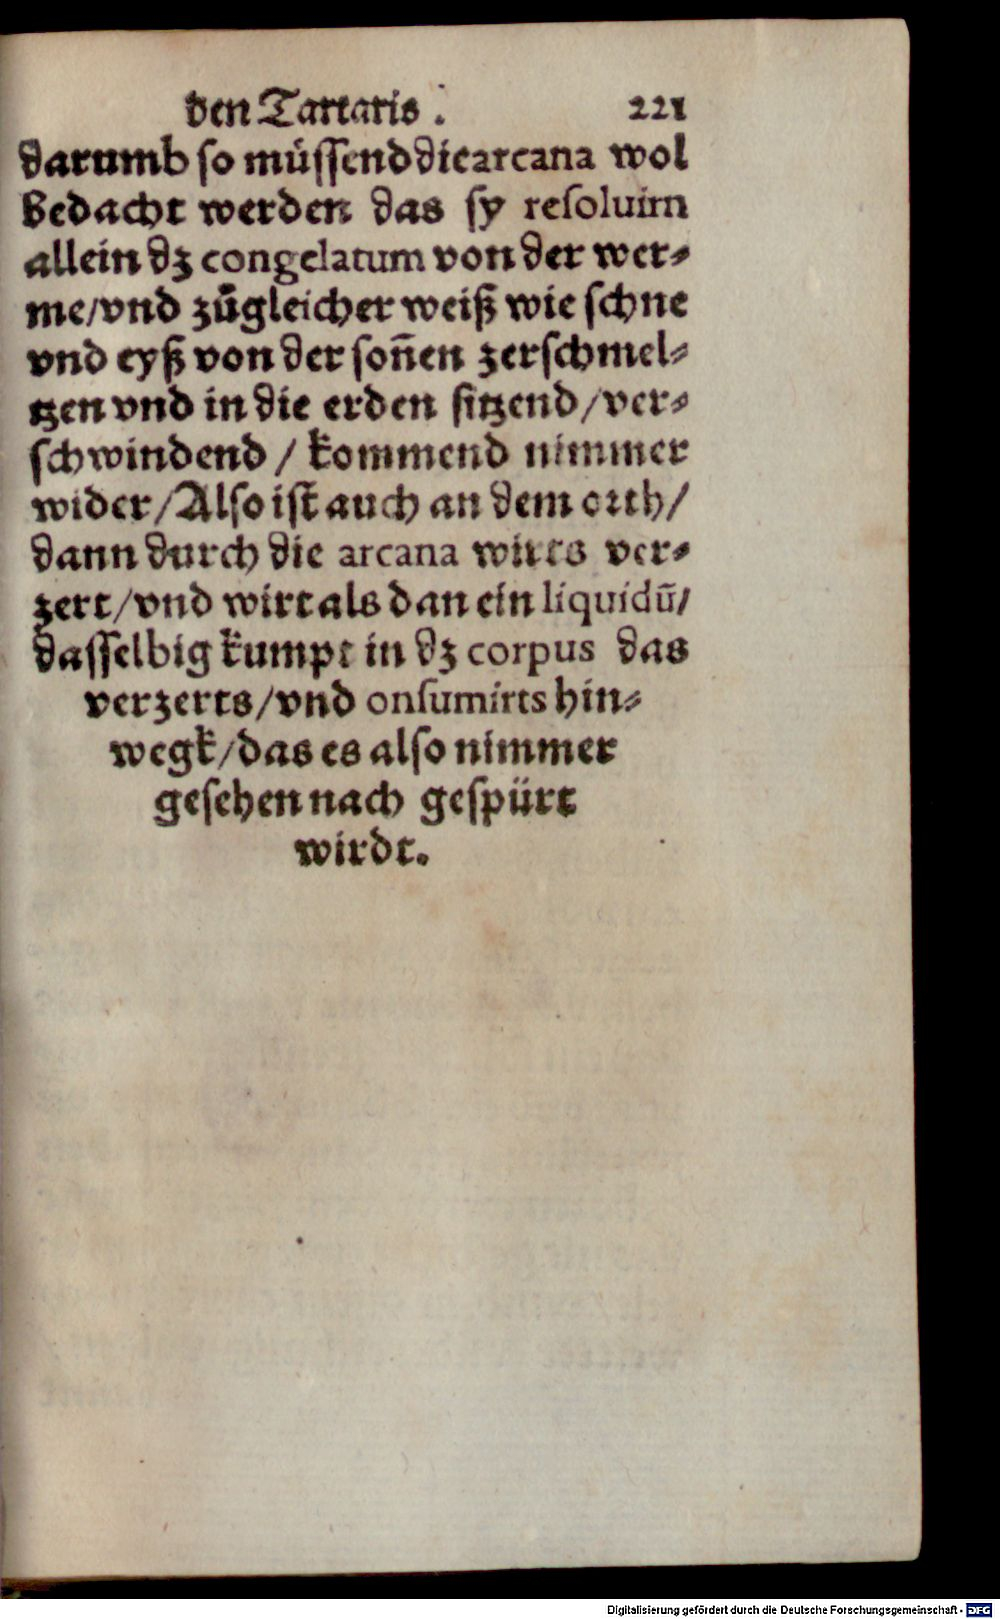 den Tartaris. 221
darumb so müssend die arcana wol
bedacht werden das sy resoluirn
allein dz congelatum von der wer⸗
me/vnd zůgleicher weiß wie schne
vnd eyß von der son̄en zerschmel⸗
tzen vnd in die erden sitzend/ver⸗
schwindend / kommend nimmer
wider/Also ist auch an dem orth/
dann durch die arcana wirts ver⸗
zert/vnd wirt als dan ein liquidū/
dasselbig kumpt in dz corpus das
verzerts/vnd onsumirts hin⸗
wegk/das es also nimmer
gesehen nach gespürt
wirdt.
Digitalisierung gefördert durch die Deutsche Forschungsgemeinschaft - DFG